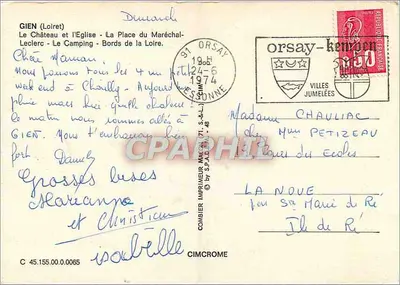 Dimanche
GIEN (Loiret)
Le Château et l'Eglise - La Place du Maréchal-
Leclerc - Le Camping - Bords de la Loire.
Chère Maman,
Nous passons tous les 4 un petit
week end à Chailly. Aujourd'hui
pluie mais hier
le matin nous sommes allés à
GIEN. Nous t'embrassons bien
fort. Daniel
Grosses bises
Marianne
et Christian
isabelle
C 45.155.00.0.0065
CIMCROME
COMBIER IMPRIMEUR MACON (71, S.-&-L.)
© by S.P.A.D.
91 ORSAY
19 H
24-6
1974
ESSONNE
orsay-kempen
VILLES
JUMELÉES
0.50
Madame CHAULIAC
chez Mme PETIZEAU
des Ecoles
LA NOUE
par Ste Marie de Ré
Ile de Ré
CPAPHIL